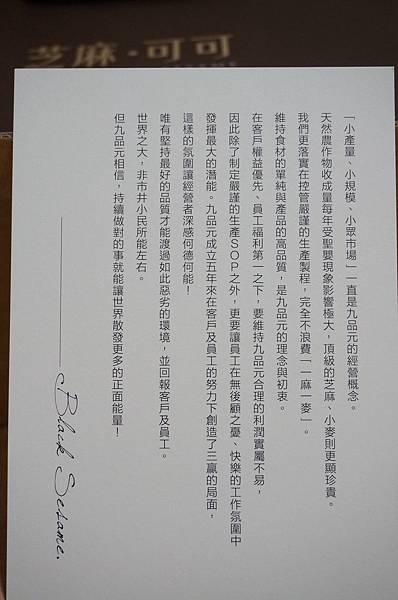 芝麻·可可
「小產量、小規模、小眾市場」一直是九品元的經營概念。
天然農作物收成量每年受聖嬰現象影響極大，頂級的芝麻、小麥則更顯珍貴。
我們更落實在控管嚴謹的生產製程，完全不浪費「一麻一麥」。
維持食材的單純與產品的高品質，是九品元的理念與初衷。
在客戶權益優先、員工福利第一之下，要維持九品元合理的利潤實屬不易，
因此除了制定嚴謹的生產SOP之外，更要讓員工在無後顧之憂、快樂的工作氛圍中
發揮最大的潛能。九品元成立五年來在客戶及員工的努力下創造了三贏的局面，
這樣的氛圍讓經營者深感何德何能！
唯有堅持最好的品質才能渡過如此惡劣的環境，並回報客戶及員工。
世界之大，非市井小民所能左右。
但九品元相信，持續做對的事就能讓世界散發更多的正面能量！
Black Sesame.